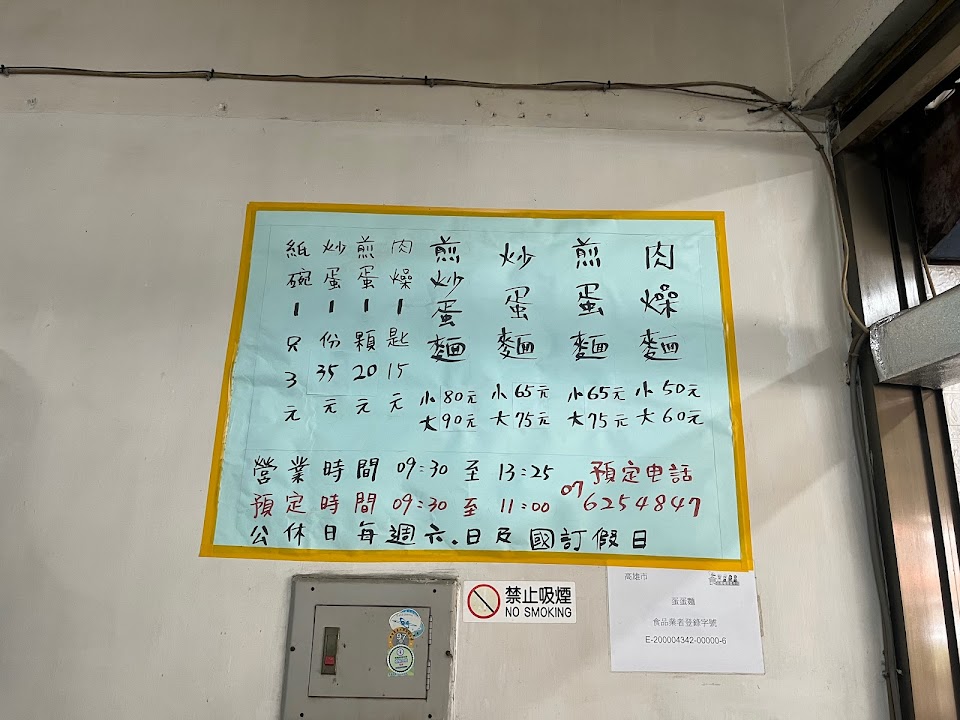 肉燥麵
小50元
大60元
煎蛋麵
小65元
大75元
炒蛋麵
小65元
大75元
煎炒蛋麵
小80元
大90元
肉燥1匙15元
煎蛋1顆20元
炒蛋1份35元
紙碗1只3元
營業時間 09:30 至 13:25
預定時間 09:30 至 11:00
預定申話
07 6254847
公休日每週六.日及國訂假日
禁止吸煙
NO SMOKING
高雄市
蛋蛋麵
食品業者登錄字號
E-200004342-00000-6
97